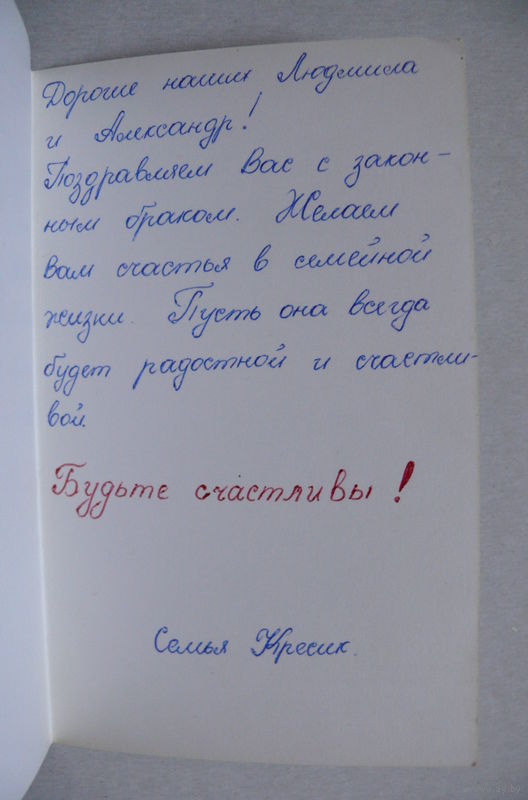 Дорогие наших Людмила
и Александр!
Поздравляем Вас с закон-
ным браком. Желаем
вам счастья в семейной
жизни. Пусть она всегда
будет радостной и счастли-
вой.
Будьте счастливы!
Семья Кресик.